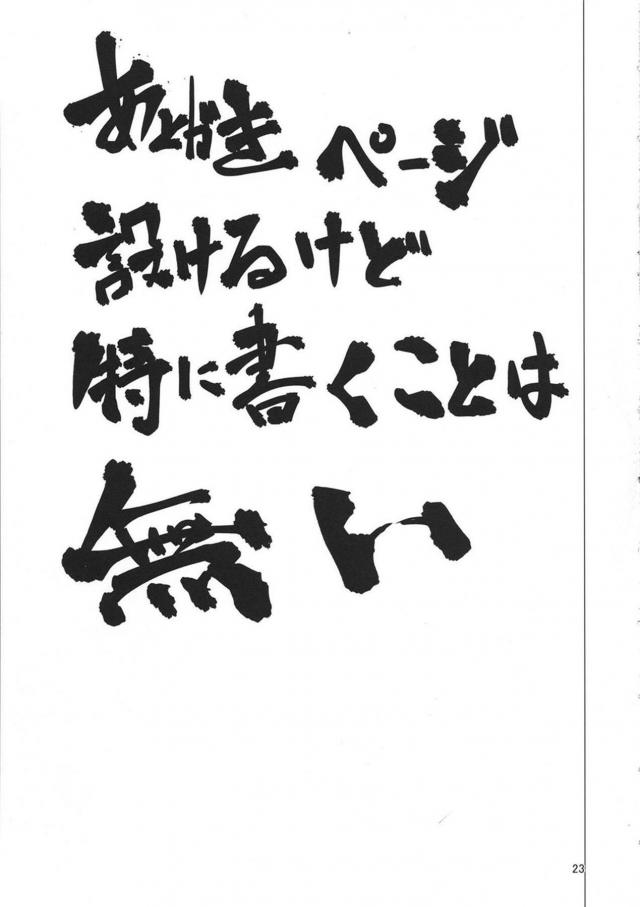 あとがき ページ
設けるけど
特に書くことは
無い
23